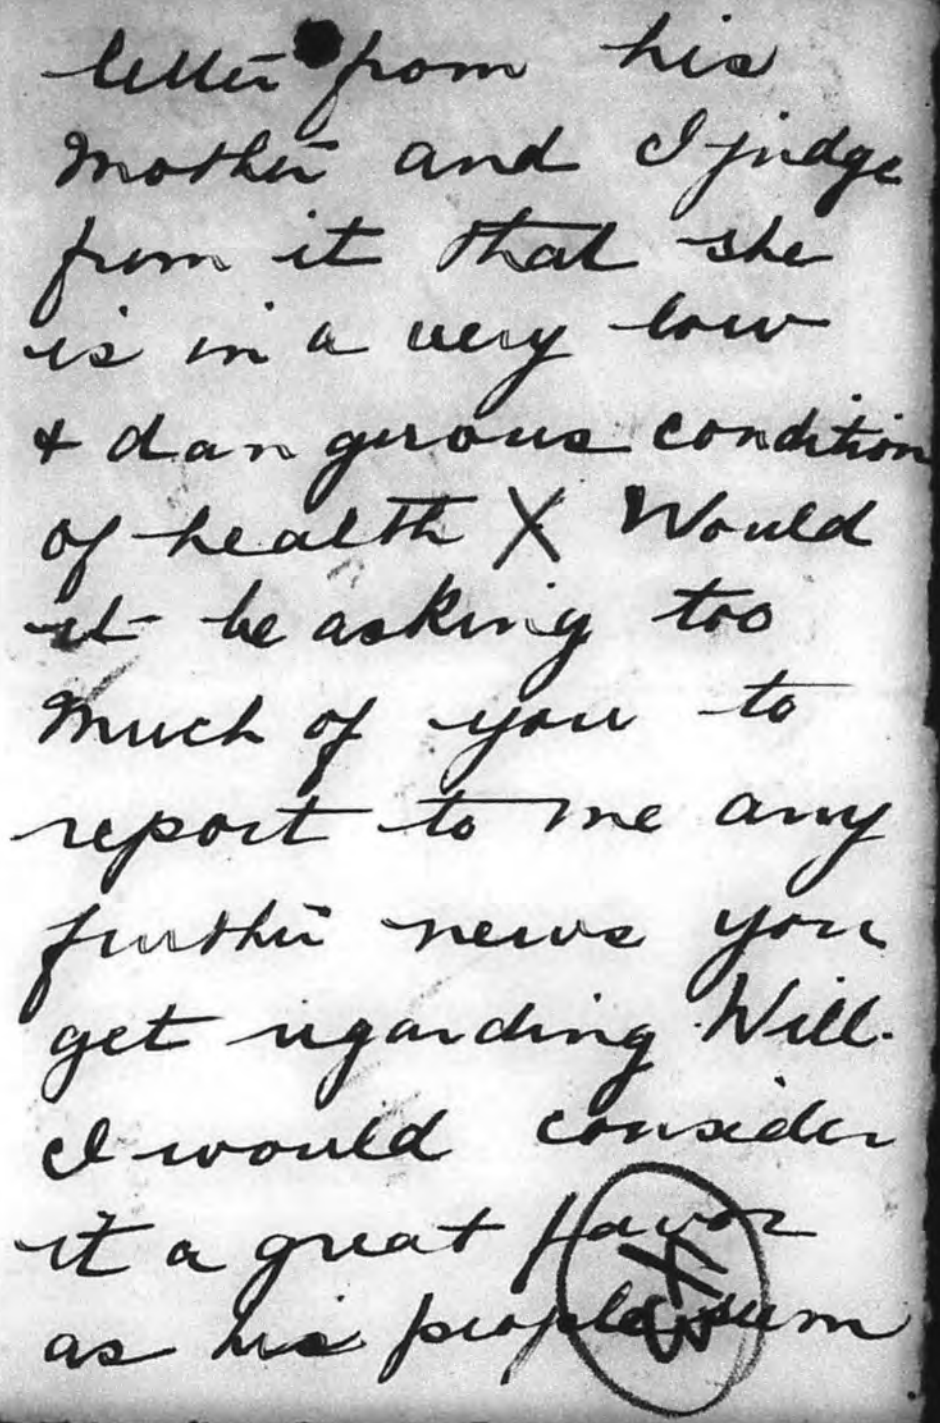 letter from his
Mother and I judge
from it that she
is in a very low
& dangerous condition
of health X Would
it be asking too
Much of you to
report to me any
further news you
get regarding Will.
I would consider
it a great favor
as his people seem